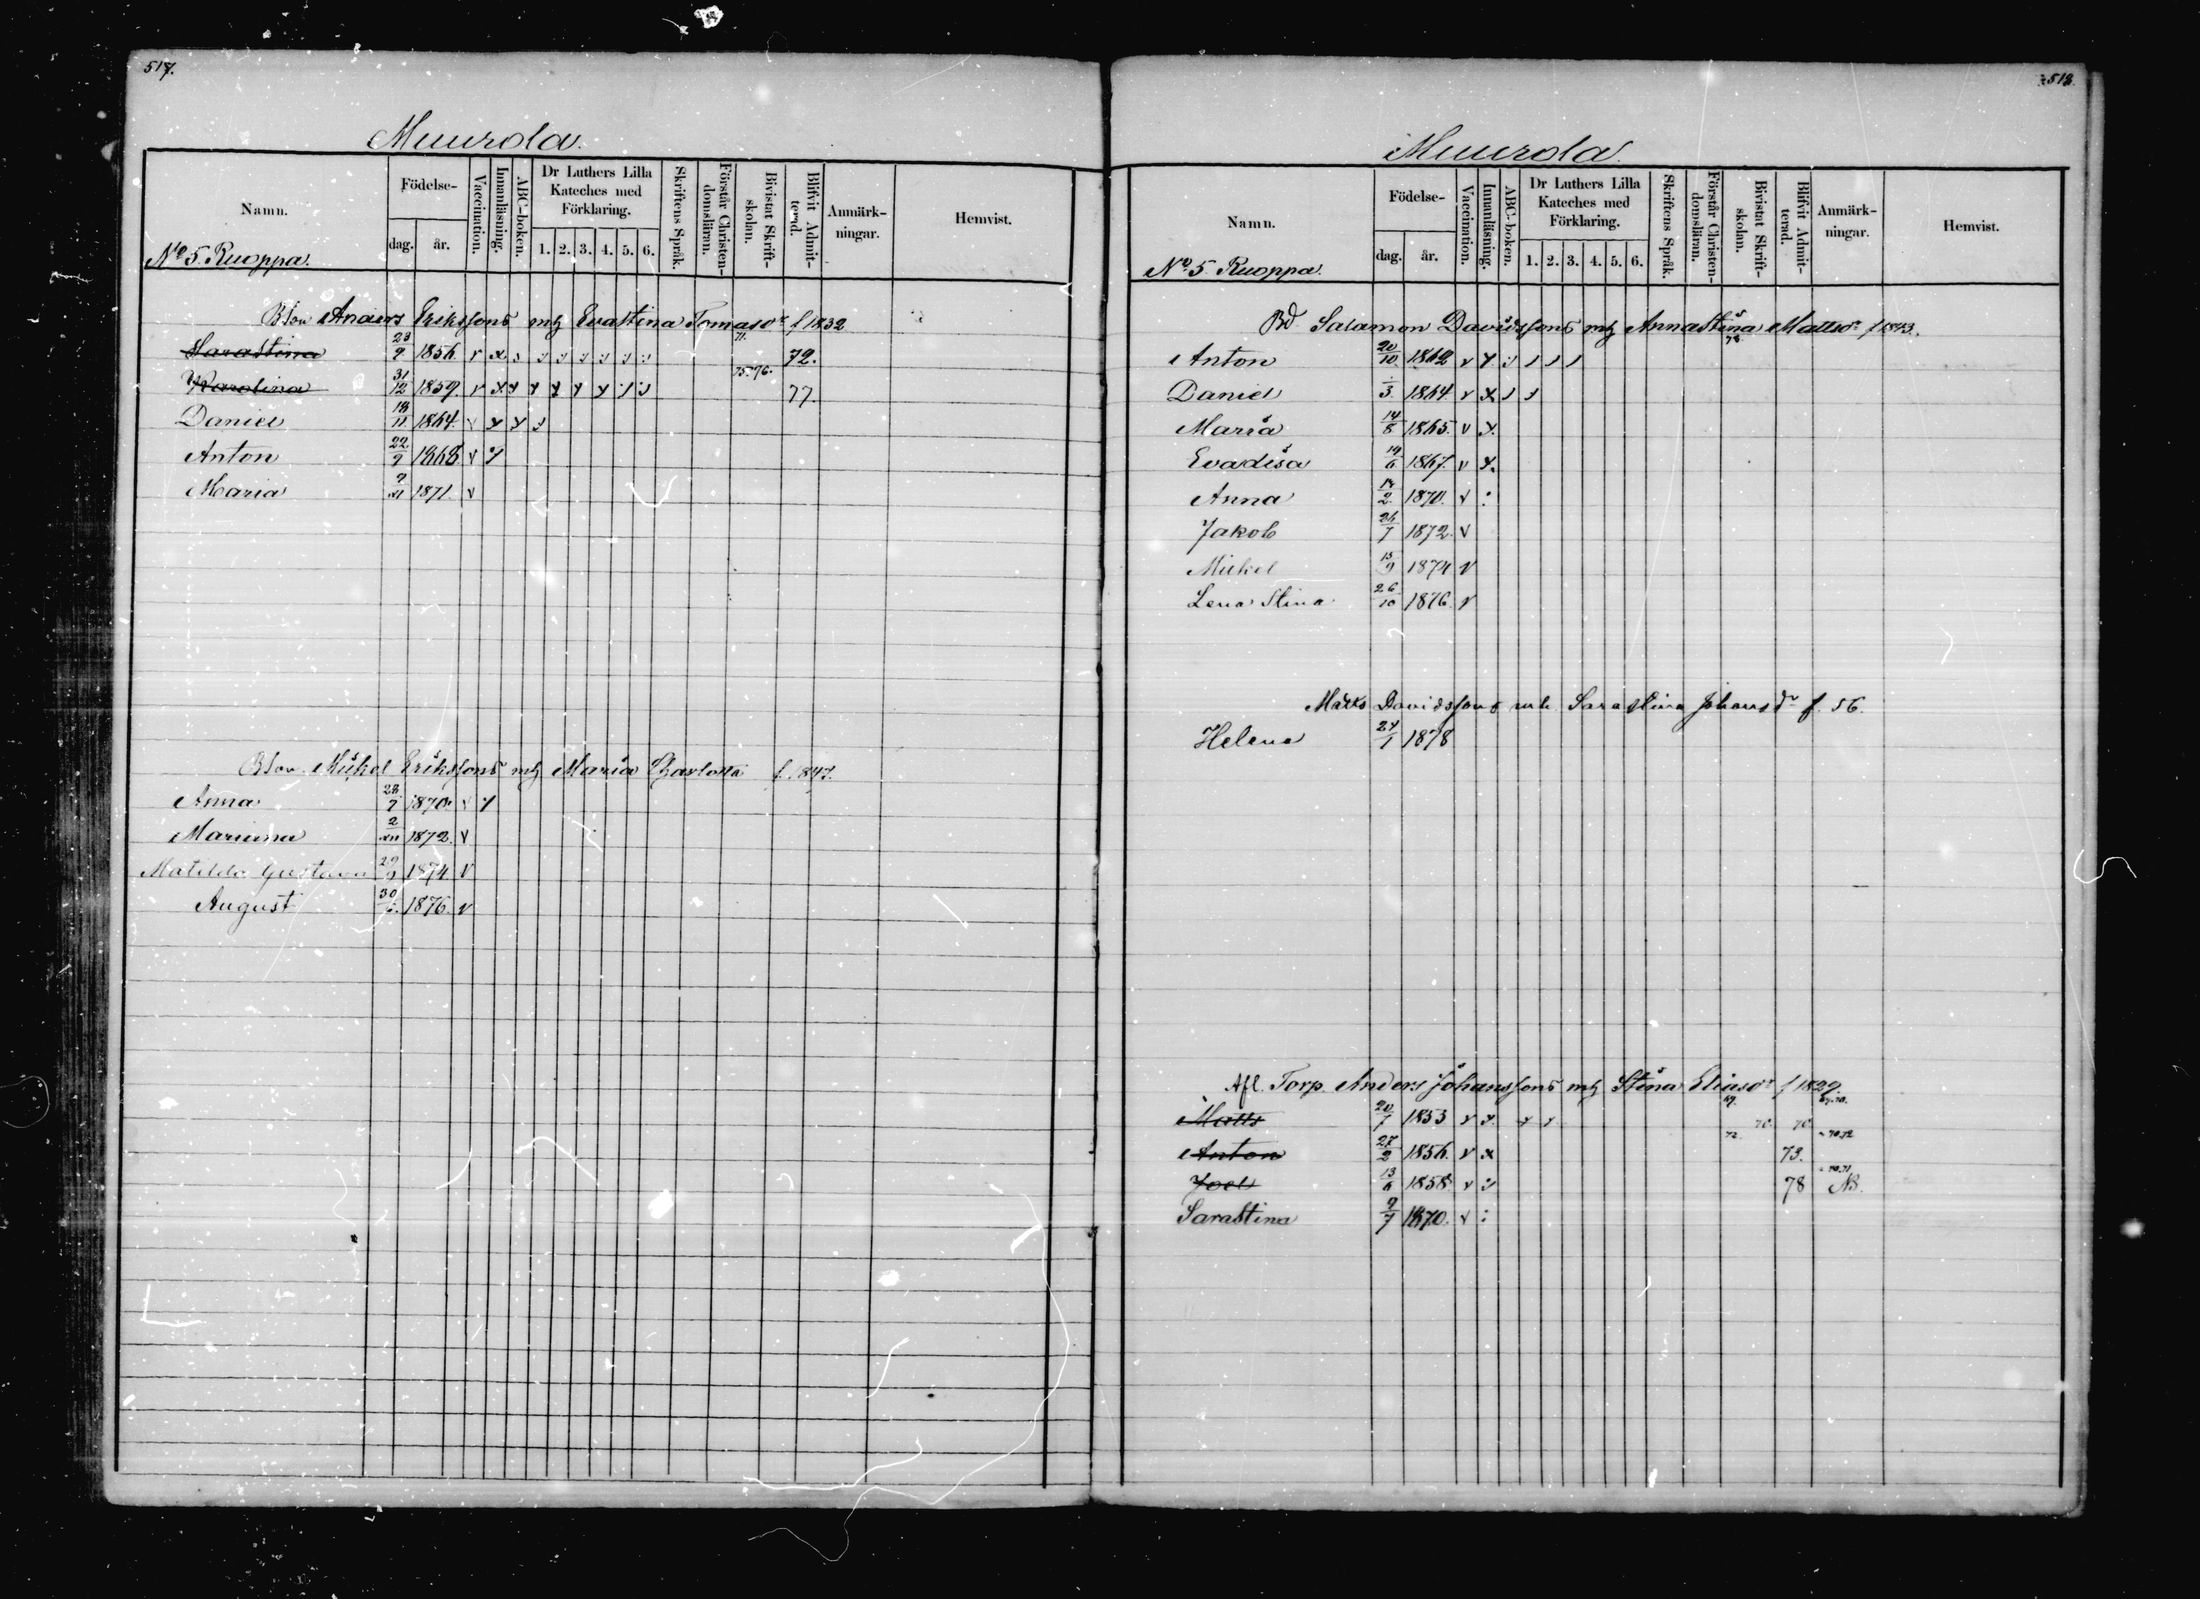 517.
Muurola.
Namn.
Födelse-
dag.
år.
Vaccination.
Innanläsning.
ABC-boken.
Dr Luthers Lilla Kateches med Förklaring.
1. 2. 3. 4. 5. 6.
Skriftens Språk.
Förstår Christen-domsläran.
Bivistat Skrift-skolan.
Blifvit Admit-terad.
Anmärk-ningar.
Hemvist.
No 5. Ruoppa.
Anders Erikssons mh Evastina Tomasdr f 1832
Sarastina 23/9 1856. v x 71. 72.
Karolina 31/12 1859. v x 75. 76. 77.
Daniel 18/11 1864. v
Anton 22/9 1868 v
Maria 9/XI 1871. v
Mickel Erikssons mh Maria Charlotta f. 1847.
Anna 28/7 1870. v
Mariana 2/XII 1872. v
Matilda Gustava 29/9 1874 v
August 30/6. 1876. v
518.
Muurola.
Namn.
Födelse-
dag.
år.
Vaccination.
Innanläsning.
ABC-boken.
Dr Luthers Lilla Kateches med Förklaring.
1. 2. 3. 4. 5. 6.
Skriftens Språk.
Förstår Christen-domsläran.
Bivistat Skrift-skolan.
Blifvit Admit-terad.
Anmärk-ningar.
Hemvist.
No 5 Ruoppa.
Bd Salamon Davidssons mh Annastina Mattsdr f 1843.
Anton 20/10 1862 v 78
Daniel 3 1864 v x
Maria 14/8 1865. v
Evalisa 19/6 1867. v
Anna 2. 1870. v
Jakob 26/7 1872. v
Mickel 15/9 1874 v
Lena Stina 26/10 1876. v
Davidssons mh Sarastina Johansdr f. 56.
Helena 24/1 1878
Afl. Torp. Anders Johanssons mh Stina Eliasdr f 1829.
Matts 20/7 1853 v 69. 70. 70
Anton 27/2 1856. v x 72. 73. 70.72
Joel 13/6 1858. v 78 70.71 NB.
Sarastina 9/7 1870. v